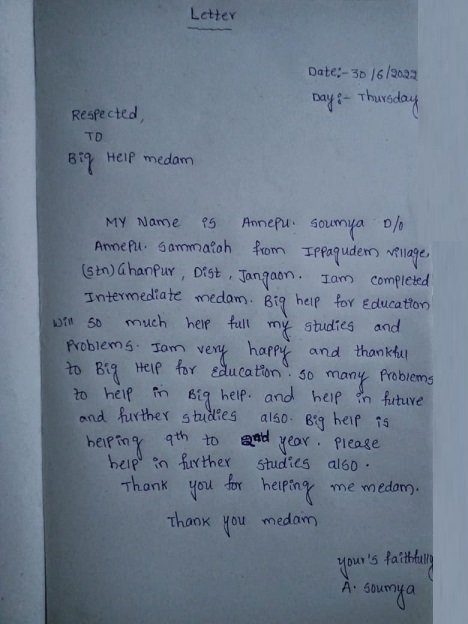 Letter
Date:- 30/6/2022
Day:- Thursday
Respected,
TO
Big Help medam
MY Name is Annepu. Soumya D/o
Annepu. Sammaiah from Ippagudem village,
(Stn) Ghanpur, Dist, Jangaon. Iam completed
Intermediate medam. Big help for Education
Will so much help full my studies and
Problems. Iam very happy and thankful
to Big Help for Education. So many Problems
to help in Big help. and help in future
and further studies also. Big help is
helping 9th to 2nd year. Please
help in further studies also.
Thank you for helping me medam.
Thank you medam
your's faithfully
A. Soumya